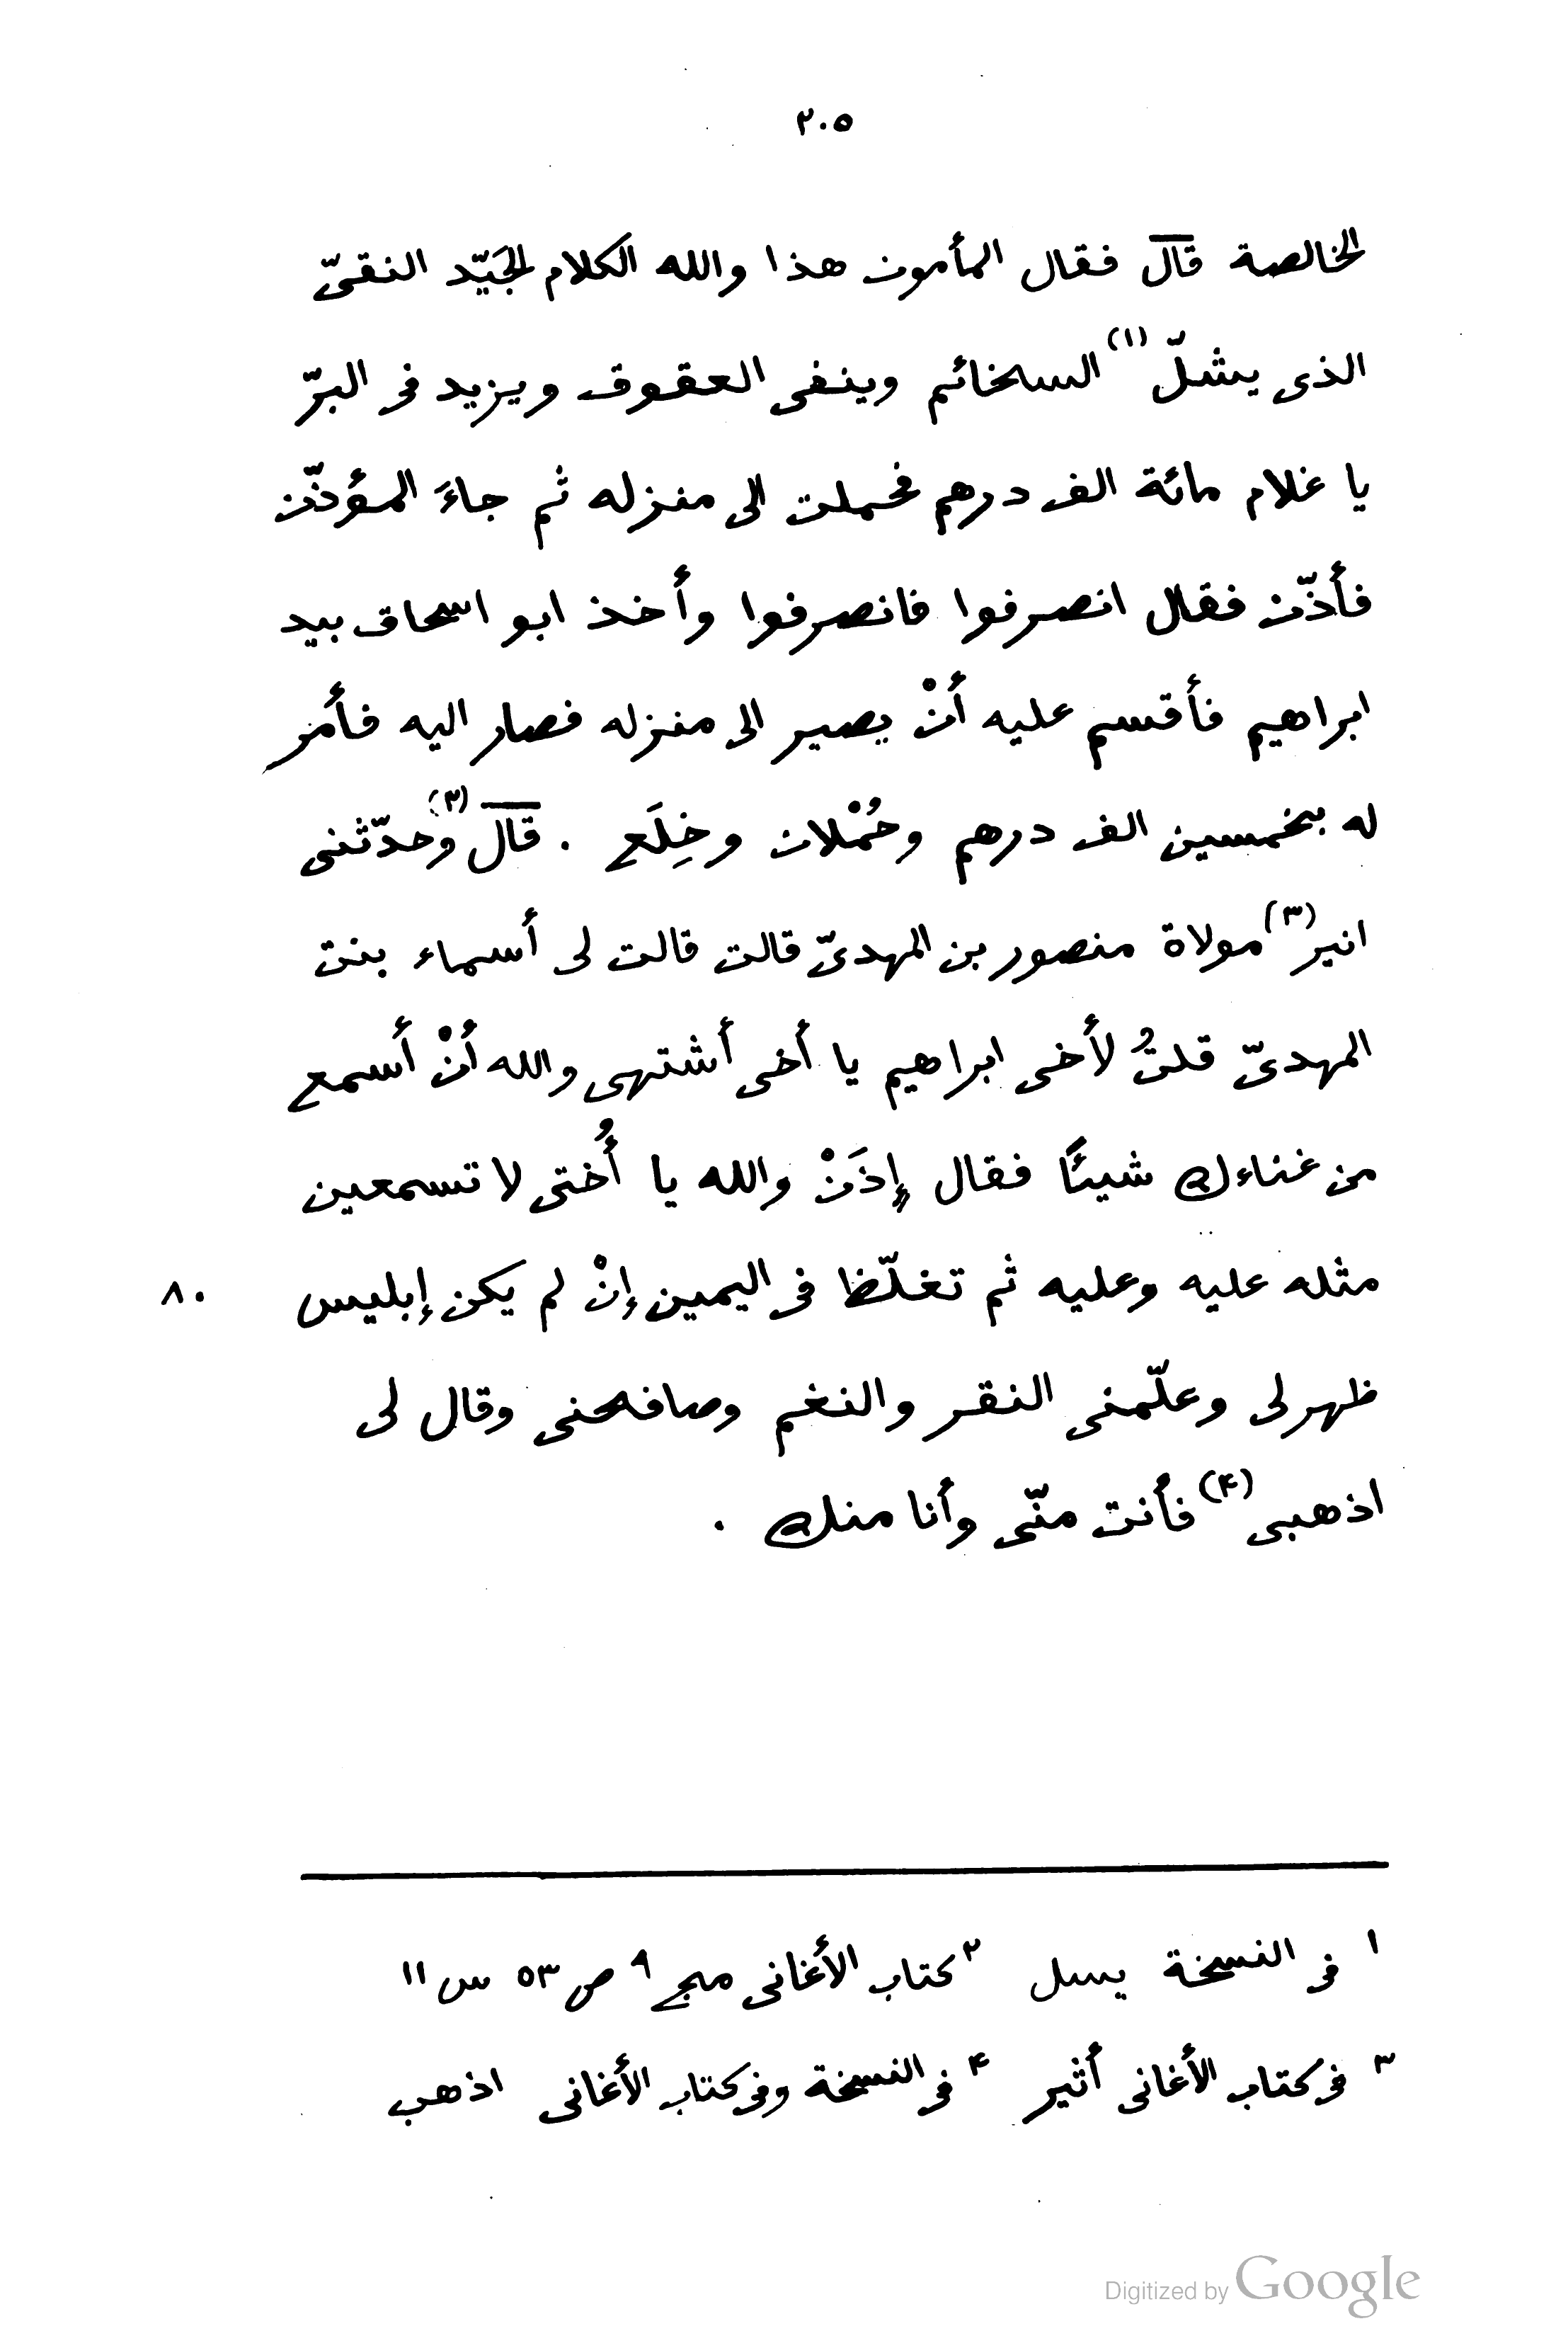 ٢٠٥
الخالصة قال فقال المأمون هذا والله الكلام الجَيّد النقىّ
الذى يشلّ (١) السخائم وينفى العقوق ويزيد فى البرّ
يا غلام مائة الف درهم فحملت الى منزله ثم جاءَ المؤذّن
فأذّن فقال انصرفوا فانصرفوا وأخذ ابو اسحاق بيد
ابراهيم فأقسم عليه أنْ يصير الى منزله فصار اليه فأمر
له بخمسين الف درهم وحُمْلان وخِلَع . قال (٢) وحدّثنى
انير (٣) مولاة منصور بن المهدىّ قالت قالت لى أسماء بنت
المهدىّ قلتُ لأخى ابراهيم يا أخى أشتهى والله أنْ أسمع
من غناءك شيئًا فقال إذَنْ والله يا أُختى لا تسمعين
مثله عليه وعليه ثم تغلّظ فى اليمين إنْ لم يكن إبليس
٨٠
ظهر لى وعلّمنى النقر والنغم وصافحنى وقال لى
اذهبى (٤) فأنت منّى وأنا منك .
١ فى النسخة يسل ٢ كتاب الأغانى مج ٩ ص ٥٣ س ١١
٣ فى كتاب الأغانى أثير ٤ فى النسخة وفى كتاب الأغانى اذهب
Digitized by Google